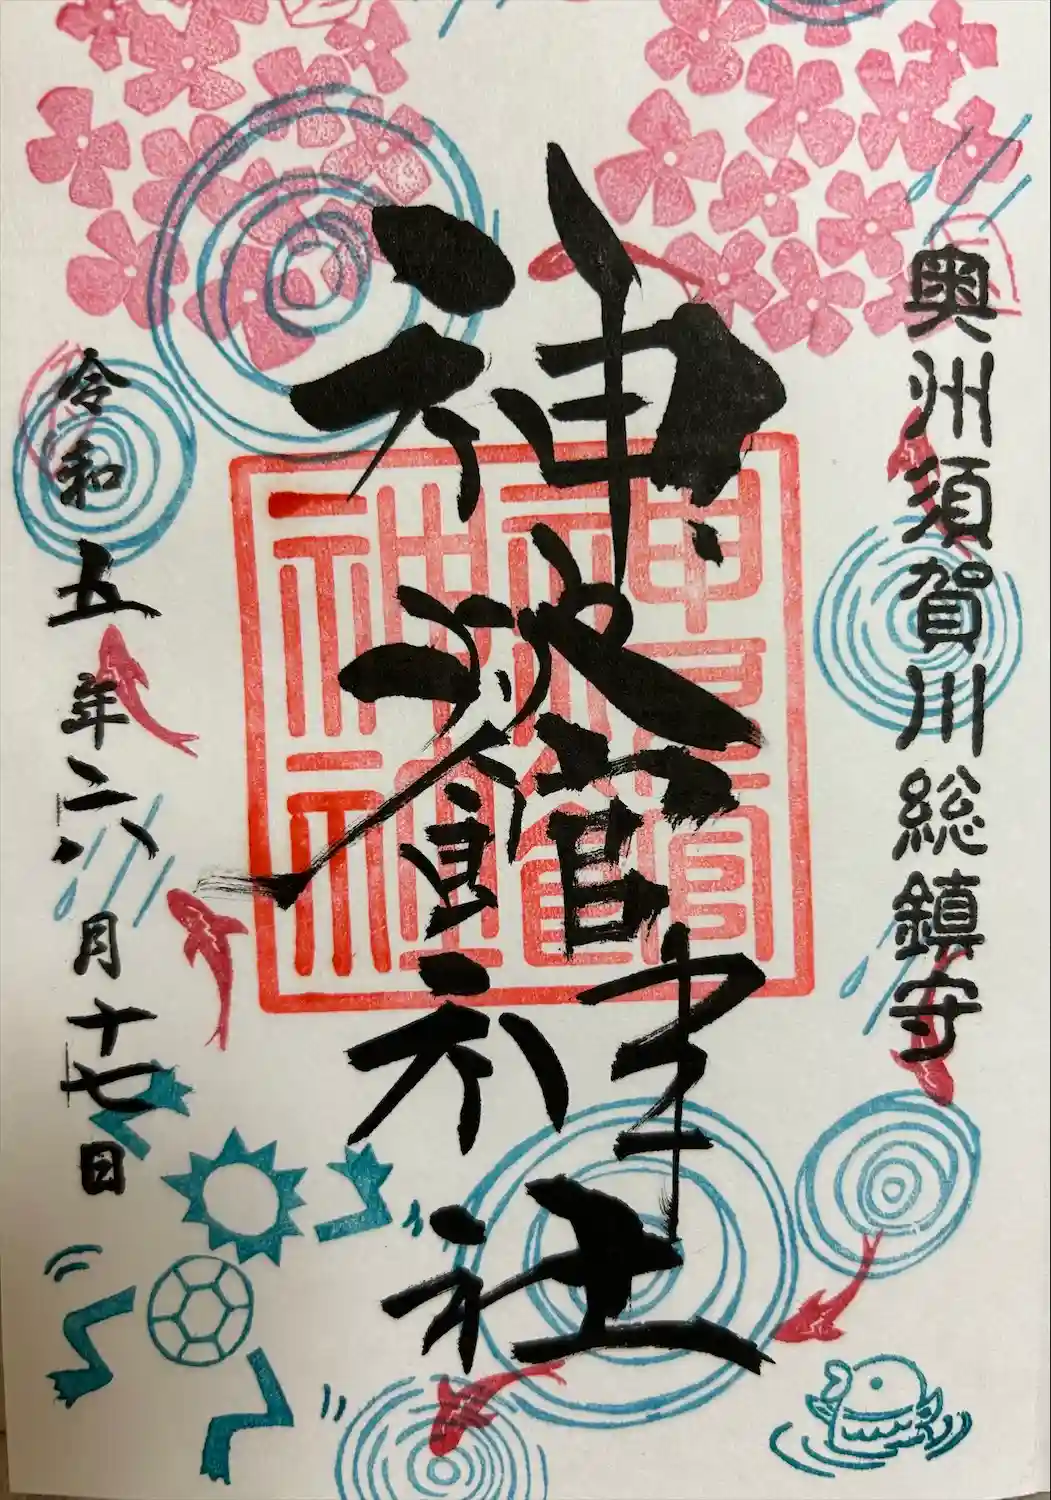 奥州須賀川総鎮守
神炊館神社
令和五年六月十七日
神炊館
神社